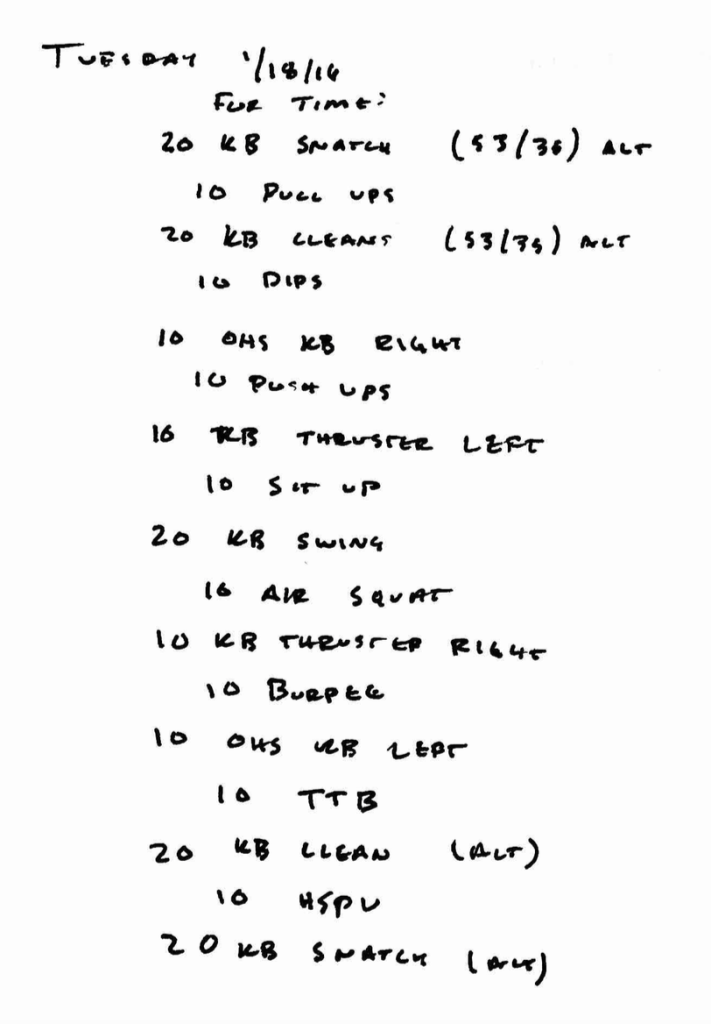 TUESDAY 1/18/16
FOR TIME:
20 KB SNATCH (53/35) ALT
10 PULL UPS
20 KB CLEANS (53/35) ALT
10 DIPS
10 OHS KB RIGHT
10 PUSH UPS
10 KB THRUSTER LEFT
10 SIT UP
20 KB SWING
10 AIR SQUAT
10 KB THRUSTER RIGHT
10 BURPEE
10 OHS KB LEFT
10 TTB
20 KB CLEAN (ALT)
10 HSPU
20 KB SNATCH (ALT)